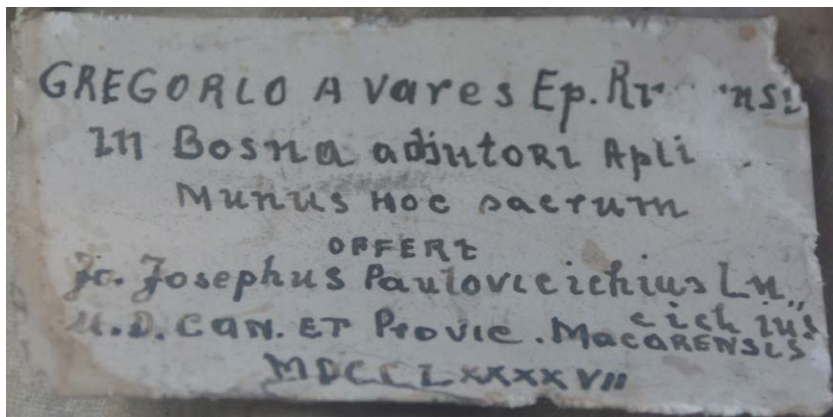 GREGORIO A Vares Ep.
In Bosna adjutori Apli
Munus Hoc sacrum
OFFERt
Jo. Josephus Paulovicichius Lu,,
cichius
U.D. CAN. ET Provic. MacARENSIS
MDCCLXXXXVII